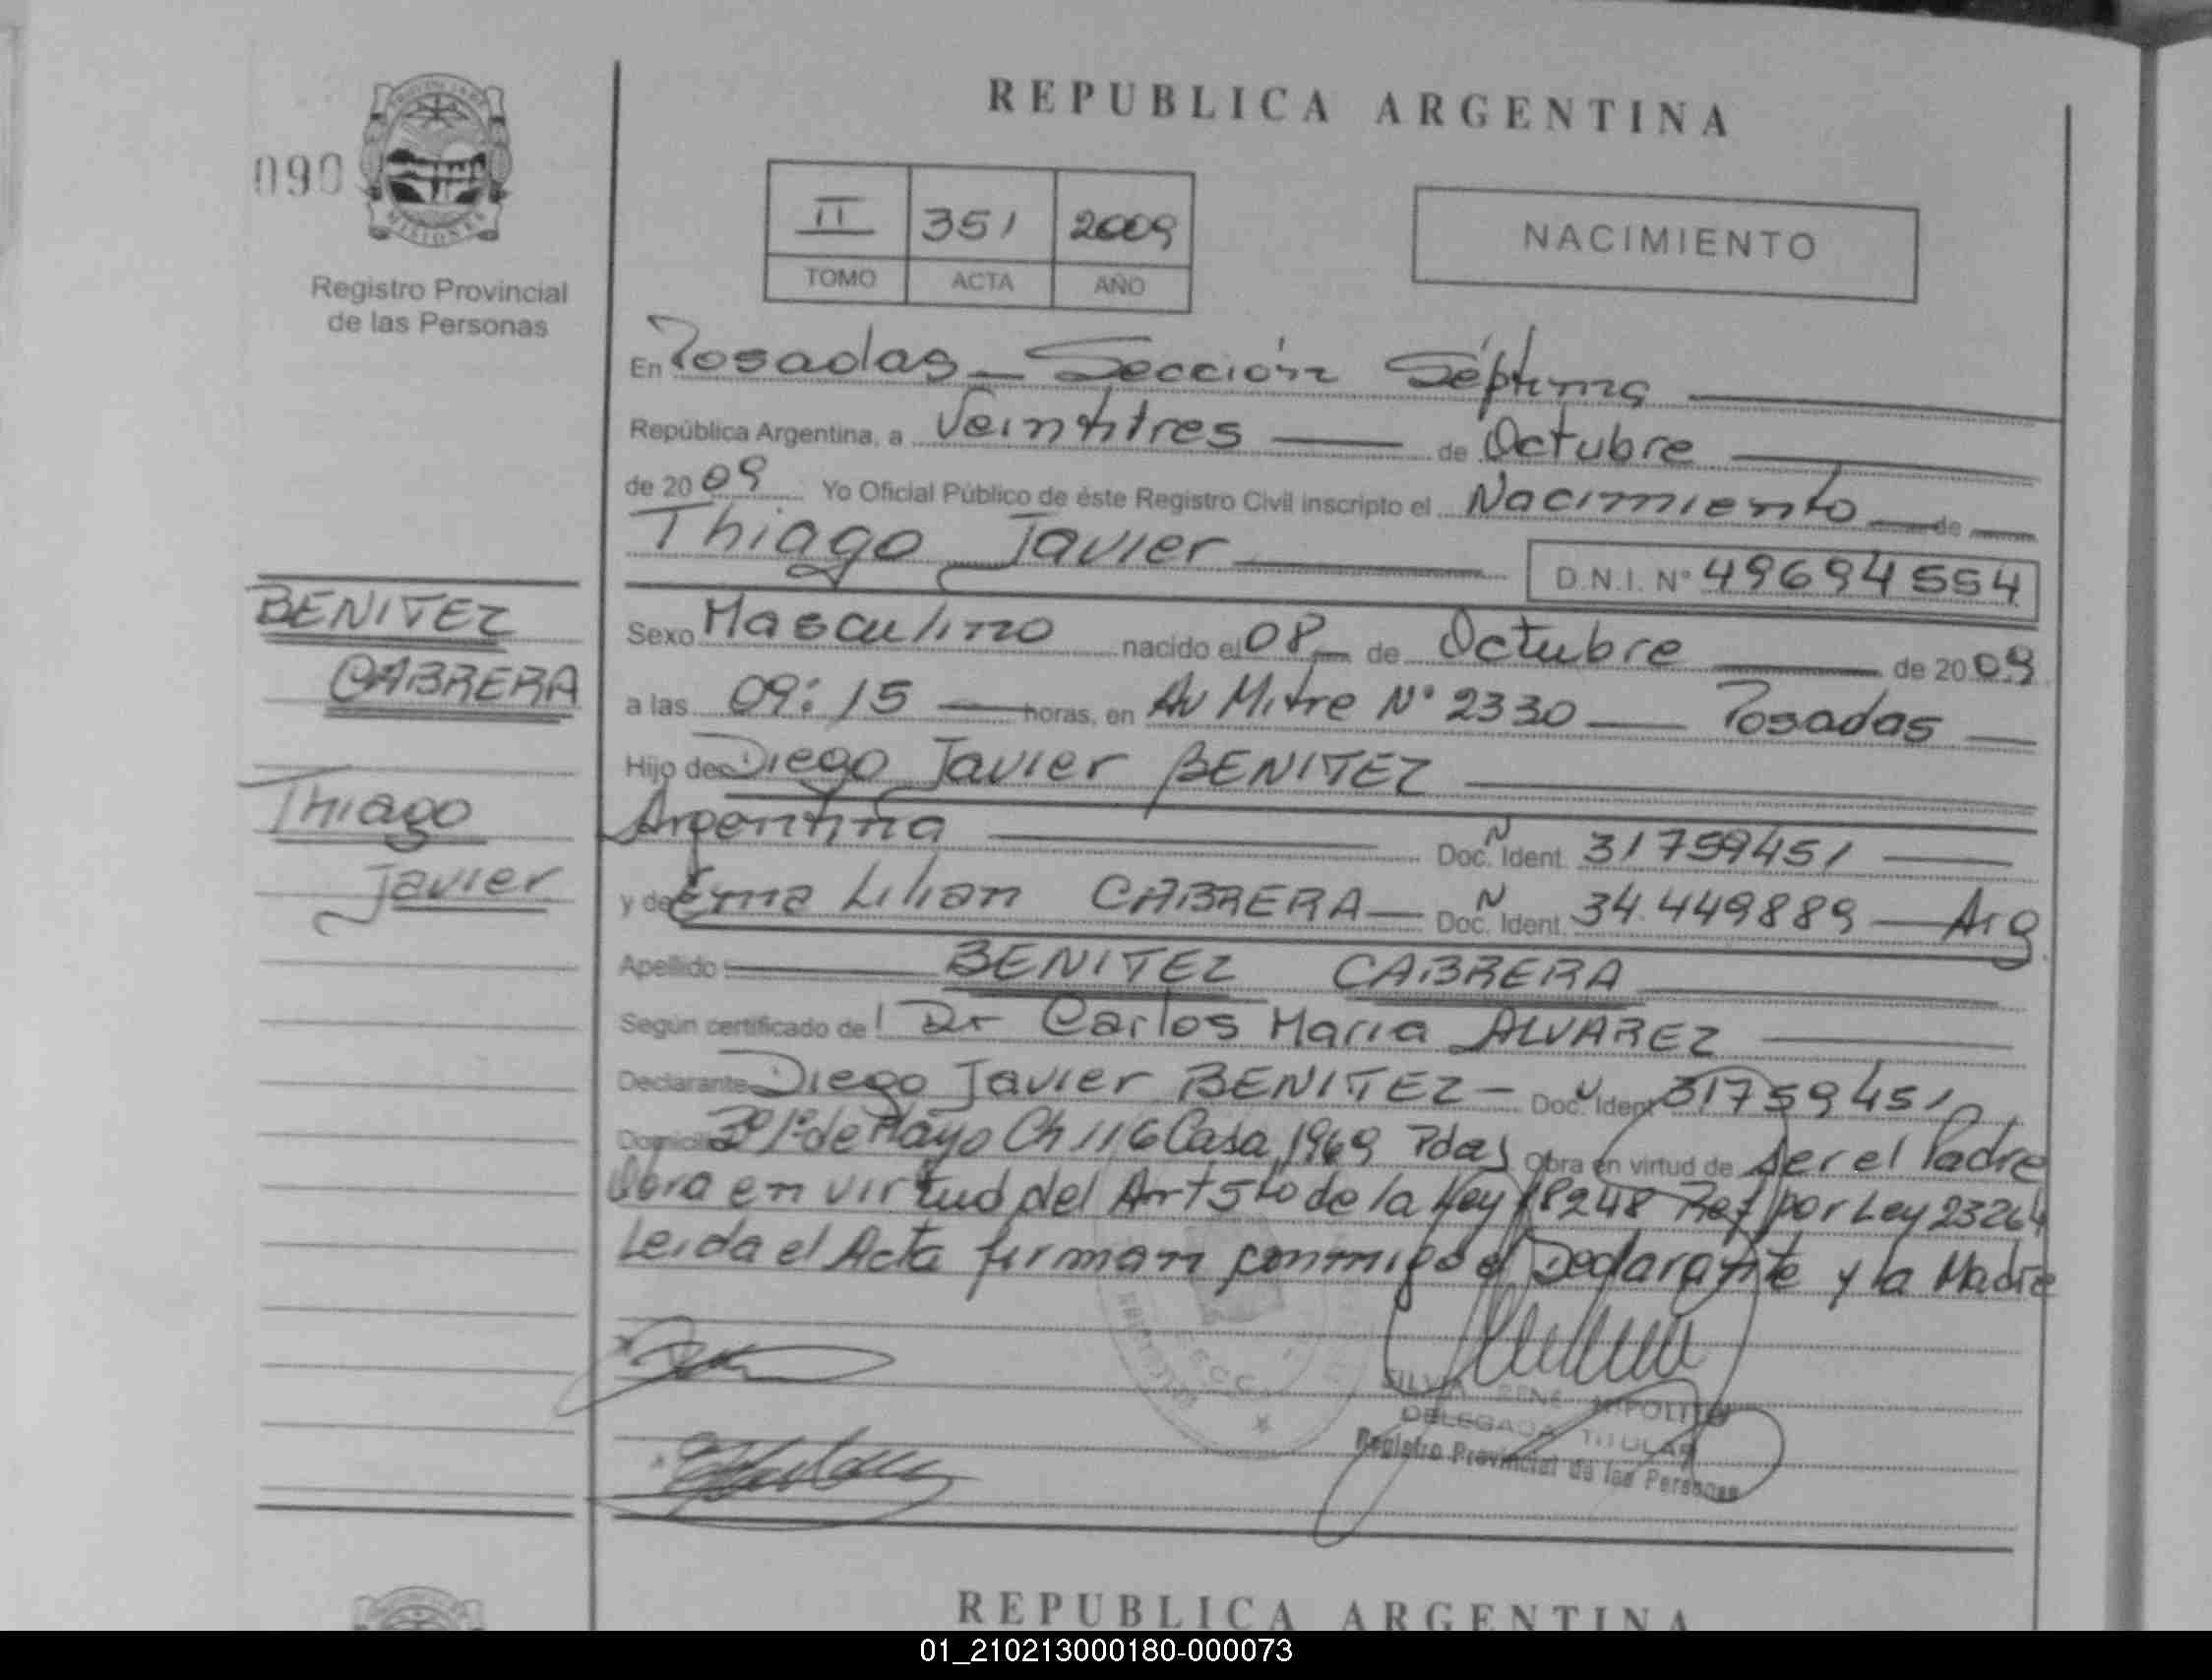 REPUBLICA ARGENTINA
090
PROVINCIA DE
MISIONES
Registro Provincial
de las Personas
II 351 2009
TOMO ACTA AÑO
NACIMIENTO
En Posadas - Sección Séptima
República Argentina, a Veintitres de Octubre
de 2009 Yo Oficial Público de éste Registro Civil inscripto el Nacimiento de
Thiago Javier D.N.I. Nº 49694554
BENITEZ
CABRERA
Thiago
Javier
Sexo Masculino nacido el 08 de Octubre de 2009
a las 09:15 horas, en Av Mitre Nº 2330 Posadas
Hijo de Diego Javier BENITEZ
Argentina Doc. N Ident. 31759451
y de Ema Lilian CABRERA Doc. N Ident. 34.449889 Arg.
Apellido BENITEZ CABRERA
Según certificado de l Dr Carlos Maria ALVAREZ
Declarante Diego Javier BENITEZ - Doc. N Ident 31759451
Domicilio Bº 1º de Mayo Ch 116 Casa 1969 Pdas Obra en virtud de ser el Padre
Obra en virtud del Art 5to de la Ley 18248 Ref por Ley 23264
Leida el Acta firman conmigo el Declarante y la Madre
SILVIA RENE HIPOLITO
DELEGADA TITULAR
Registro Provincial de las Personas
REPUBLICA ARGENTINA
01_210213000180-000073